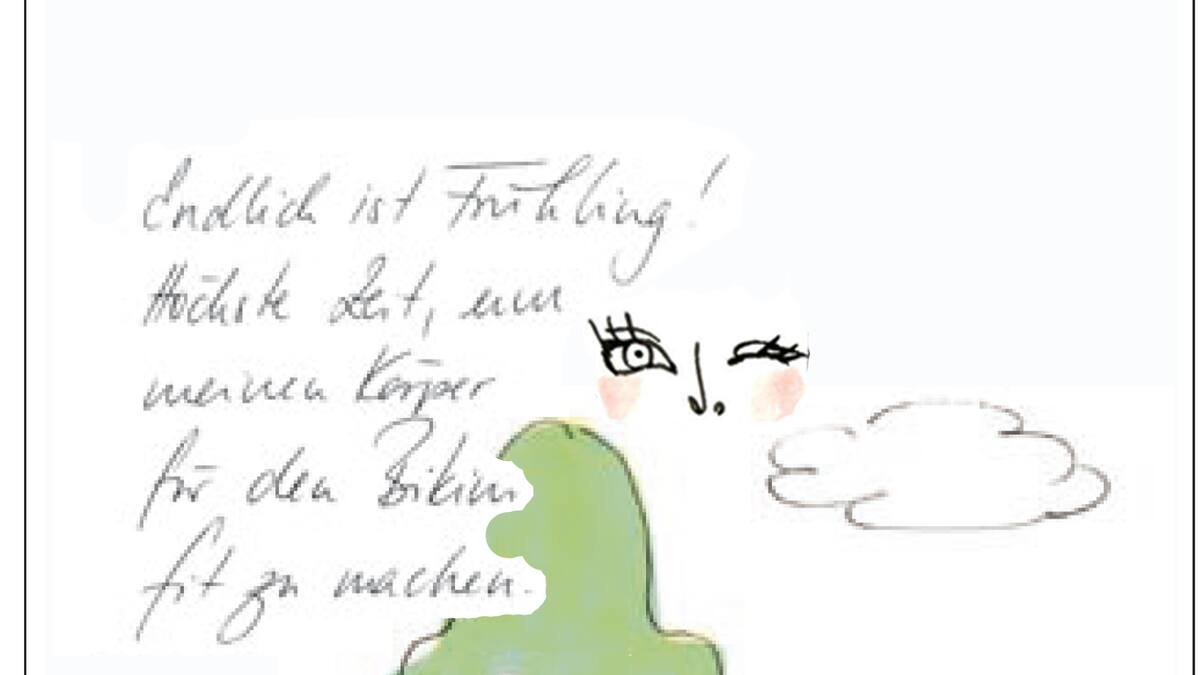 Endlich ist Frühling!
Höchste Zeit, um
meinen Körper
für den Bikini
fit zu machen.